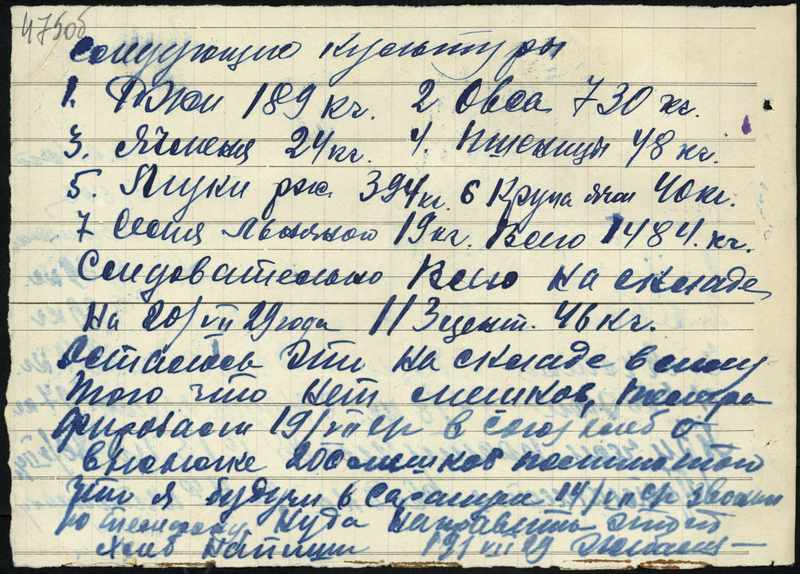 47506
следующие культуры
1. Ржи 189 кг. 2 Овса 730 кг.
3. Ячменя 24 кг. 4. Пшеницы 48 кг.
5. Муки рж. 394 кг. 6 Крупа ячн 40 кг.
7 Семя льняного 19 кг. Всего 1484. кг.
Следовательно Всего на складе
на 20/VII 29 года 113 цент. 46 кг.
Осталось эти на складе в силу
того что нет мешков, телегра
фировали 19/VII ср в Союзхлеб о
высылке 200 мешков
что я будучи в 19/VII ср звонил
по телефону куда направить этот
хлеб 19/VII 29